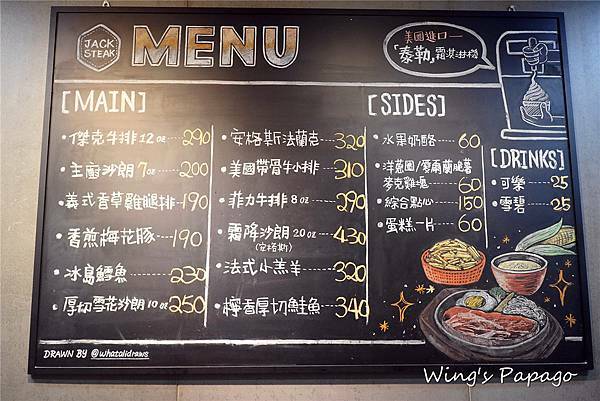 JACK
STEAK
MENU
美國進口—
「泰勒」霜淇淋機
[MAIN]
傑克牛排 12oz 290
主廚沙朗 7oz 200
義式香草雞腿排 190
香煎梅花豚 190
冰島鱈魚 230
厚切雪花沙朗 10oz 250
安格斯法蘭克 320
美國帶骨牛小排 310
菲力牛排 8oz 290
霜降沙朗 20oz 430
(安格斯)
法式小羔羊 320
檸香厚切鮭魚 340
[SIDES]
水果奶酪 60
洋蔥圈/愛爾蘭脆薯
麥克雞塊 60
綜合點心 150
蛋糕一片 60
[DRINKS]
可樂 25
雪碧 25
DRAWN BY @whatalidraws
Wing's Papago